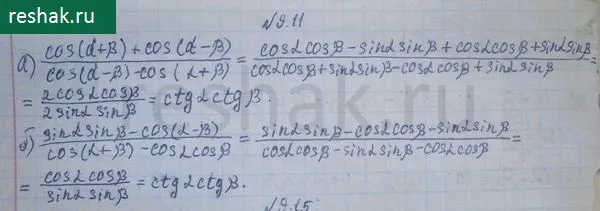 reshak.ru
№9.11
а) cos(α+β)+cos(α-β) / cos(α-β)-cos(α+β) = cosαcosβ-sinαsinβ+cosαcosβ+sinαsinβ / cosαcosβ+sinαsinβ-cosαcosβ+sinαsinβ =
= 2cosαcosβ / 2sinαsinβ = ctgαctgβ.
reshak.ru
б) sinαsinβ-cos(α-β) / cos(α+β)-cosαcosβ = sinαsinβ-cosαcosβ-sinαsinβ / cosαcosβ-sinαsinβ-cosαcosβ =
= cosαcosβ / sinαsinβ = ctgαctgβ.
№9.15